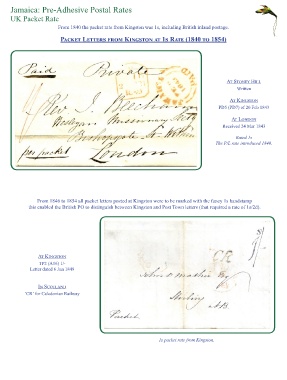 Jamaica: Pre-Adhesive Postal Rates
UK Packet Rate
From 1840 the packet rate from Kingston was 1s, including British inland postage.
Packet Letters from Kingston at 1s Rate (1840 to 1854)
Paid Private
PAID
Rev J. Beecham
Wesleyan Missionary
Bishopsgate St Within
London
per packet
At Stoney Hill
Written
At Kingston
At London
Rated 1s
The P/L rate introduced 1840.
From 1846 to 1854 all packet letters posted at Kingston were to be marked with the fancy 1s handstamp
this enabled the British PO to distinguish between Kingston and Post Town letters (that required a rate of 1s/2d).
At Kingston
Letter dated 6 Jan 1849
In Scotland
'CR' for Caledonian Railway
CR
John Mathie Esq
Stirling
N.B.
Packet
1s packet rate from Kingston.